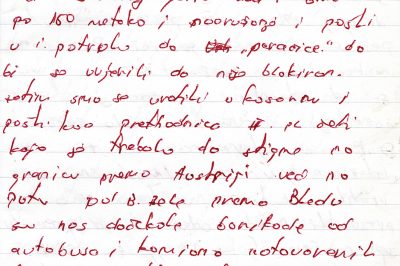 po 150 metaka i naoružanja i pošli
u i. patrolu do "paradice" da
bi se uvjerili da nije blokiran.
zatim smo se vratili u kasarnu i
pošli kao prethodnica II. četi
koja je trebala da stigne na
granicu prema Austriji već na
putu B. prema Bledu
su nas dočekale barikade od
autobusa i kamiona natovarenih